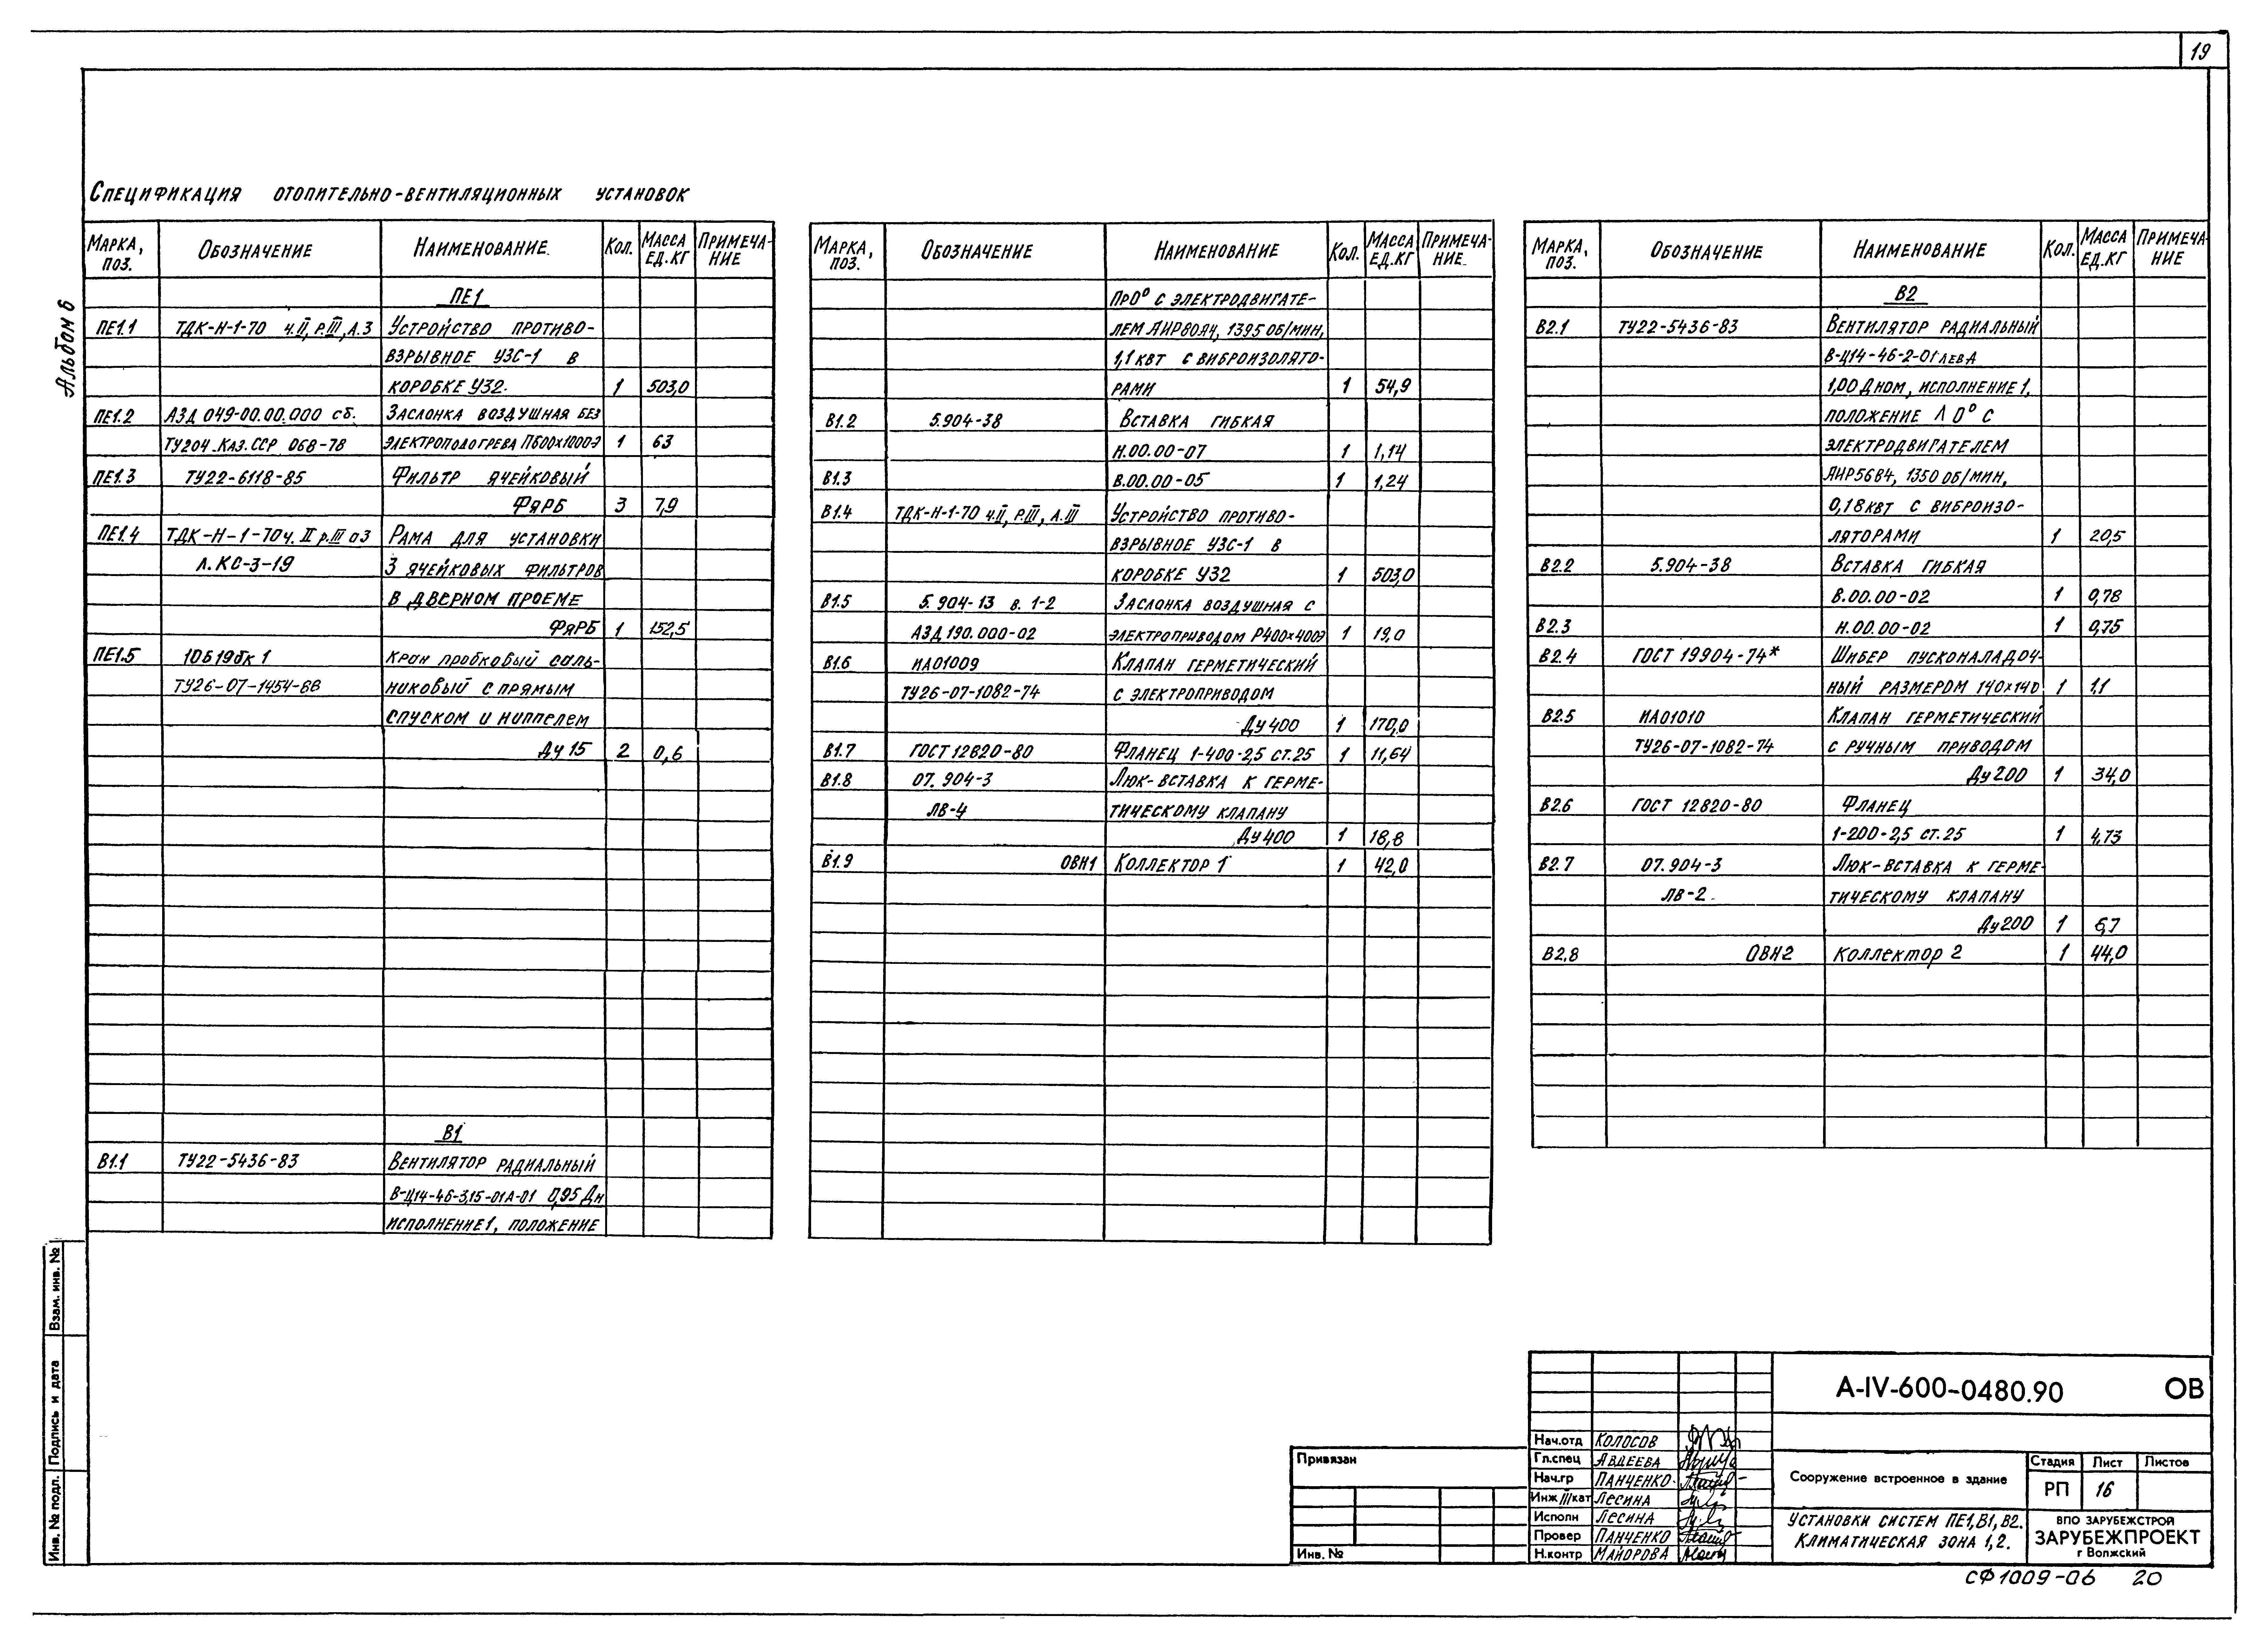 19
Альбом 6
Спецификация отопительно-вентиляционных установок
Марка, поз. Обозначение Наименование Кол. Масса ед.кг Примеча-ние
ПЕ1
ПЕ1.1 ТДК-Н-1-70 ч.II, р.III, А.3 Устройство противо-
взрывное УЗС-1 в
коробке У32. 1 503,0
ПЕ1.2 АЗД 049-00.00.000 сб. Заслонка воздушная без
ТУ204.Каз.ССР 068-78 электроподогрева П600х1000Э 1 63
ПЕ1.3 ТУ22-6118-85 Фильтр ячейковый
ФяРБ 3 7,9
ПЕ1.4 ТДК-Н-1-70 ч. II р.III а3 Рама для установки
л.КС-3-19 3 ячейковых фильтров
в дверном проеме
ФяРБ 1 152,5
ПЕ1.5 10Б19бк1 Кран пробковый саль-
ТУ26-07-1454-88 никовый с прямым
спуском и ниппелем
Ду 15 2 0,6
В1
В1.1 ТУ22-5436-83 Вентилятор радиальный
В-Ц14-46-3,15-01А-01 0,95 Дн
исполнение 1, положение
Марка, поз. Обозначение Наименование Кол. Масса ед.кг Примеча-ние.
Пр0° с электродвигате-
лем АИР80А4, 1395 об/мин,
1,1 квт с виброизолято-
рами 1 54,9
В1.2 5.904-38 Вставка гибкая
Н.00.00-07 1 1,14
В1.3 В.00.00-05 1 1,24
В1.4 ТДК-Н-1-70 ч.II, р.III, А.III Устройство противо-
взрывное УЗС-1 в
коробке У32 1 503,0
В1.5 5.904-13 в. 1-2 Заслонка воздушная с
АЗД 190.000-02 электроприводом Р400х400Э 1 19,0
В1.6 ИА01009 Клапан герметический
ТУ26-07-1082-74 с электроприводом
Ду 400 1 170,0
В1.7 ГОСТ 12820-80 Фланец 1-400-2,5 ст.25 1 11,64
В1.8 07.904-3 Люк-вставка к герме-
ЛВ-4 тическому клапану
Ду 400 1 18,8
В1.9 ОВН1 Коллектор 1 1 42,0
Марка, поз. Обозначение Наименование Кол. Масса ед.кг Примеча-ние
В2
В2.1 ТУ22-5436-83 Вентилятор радиальный
В-Ц14-46-2-01 лева
1,00 Дном, исполнение 1,
положение Л 0° с
электродвигателем
АИР56В4, 1350 об/мин,
0,18 квт с виброизо-
ляторами 1 20,5
В2.2 5.904-38 Вставка гибкая
В.00.00-02 1 0,78
В2.3 Н.00.00-02 1 0,75
В2.4 ГОСТ 19904-74* Шибер пусконаладоч-
ный размером 140х140 1 1,1
В2.5 ИА01010 Клапан герметический
ТУ26-07-1082-74 с ручным приводом
Ду 200 1 34,0
В2.6 ГОСТ 12820-80 Фланец
1-200-2,5 ст.25 1 4,73
В2.7 07.904-3 Люк-вставка к герме-
ЛВ-2. тическому клапану
Ду200 1 6,7
В2.8 ОВН2 Коллектор 2 1 44,0
Взам. инв. №
Подпись и дата
Инв. № подл.
Привязан
Инв. №
Нач.отд Колосов
Гл.спец Авдеева
Нач.гр Панченко
Инж III/кат Лесина
Исполн Лесина
Провер Панченко
Н.контр Майорова
А-IV-600-0480.90 ОВ
Сооружение встроенное в здание
Стадия Лист Листов
РП 16
Установки систем ПЕ1, В1, В2.
Климатическая зона 1, 2.
ВПО ЗАРУБЕЖСТРОЙ
ЗАРУБЕЖПРОЕКТ
г Волжский
СФ 1009-06 20